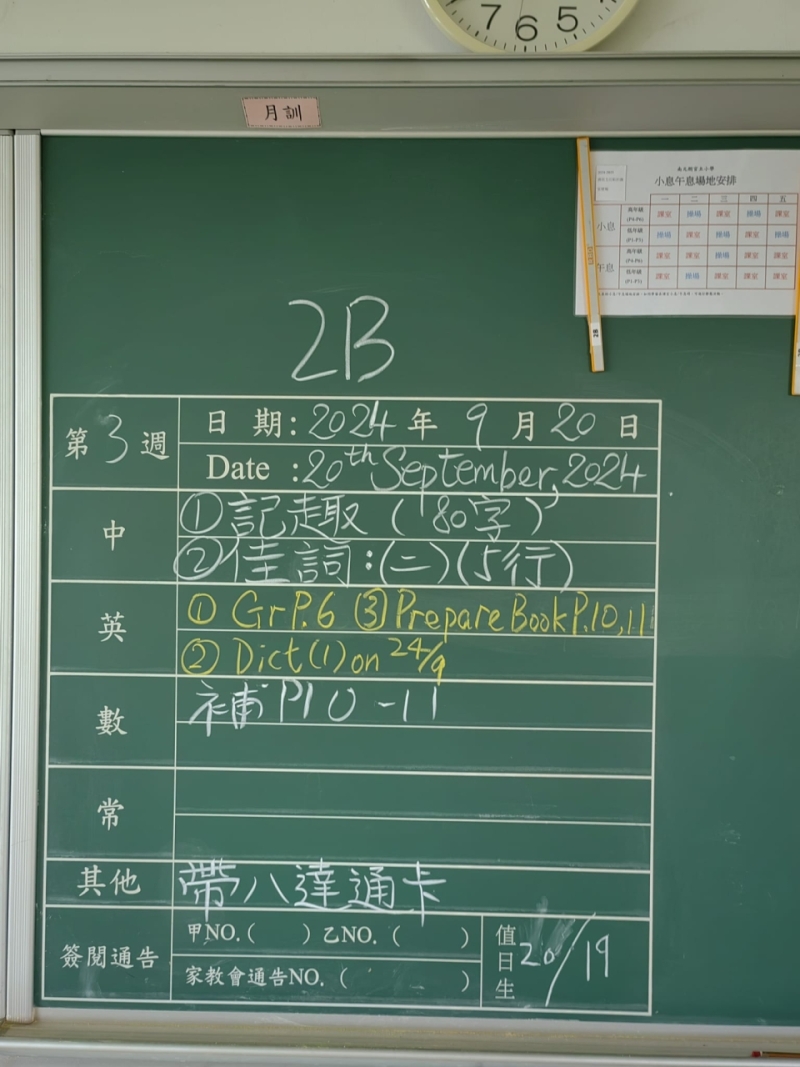 7 6 5
月訓
小息午息場地安排
一 二 三 四 五
小息 高年級 課室 操場 課室 操場 課室
(P4-P6)
低年級 操場 課室 操場 課室 操場
(P1-P3)
午息 高年級 課室 課室 操場 課室 課室
(P4-P6)
低年級 課室 操場 課室 課室 課室
(P1-P3)
2B
第3週 日期:2024年9月20日
Date :20th September, 2024
中 ①記趣(80字)
②佳詞:(二)(5行)
英 ① Gr P.6 ③ Prepare Book P.10,11
② Dict(1) on 24/9
數 補P10-11
常
其他 帶八達通卡
簽閱通告 甲NO.( ) 乙NO.( )
家教會通告NO.( )
值日生 20/19